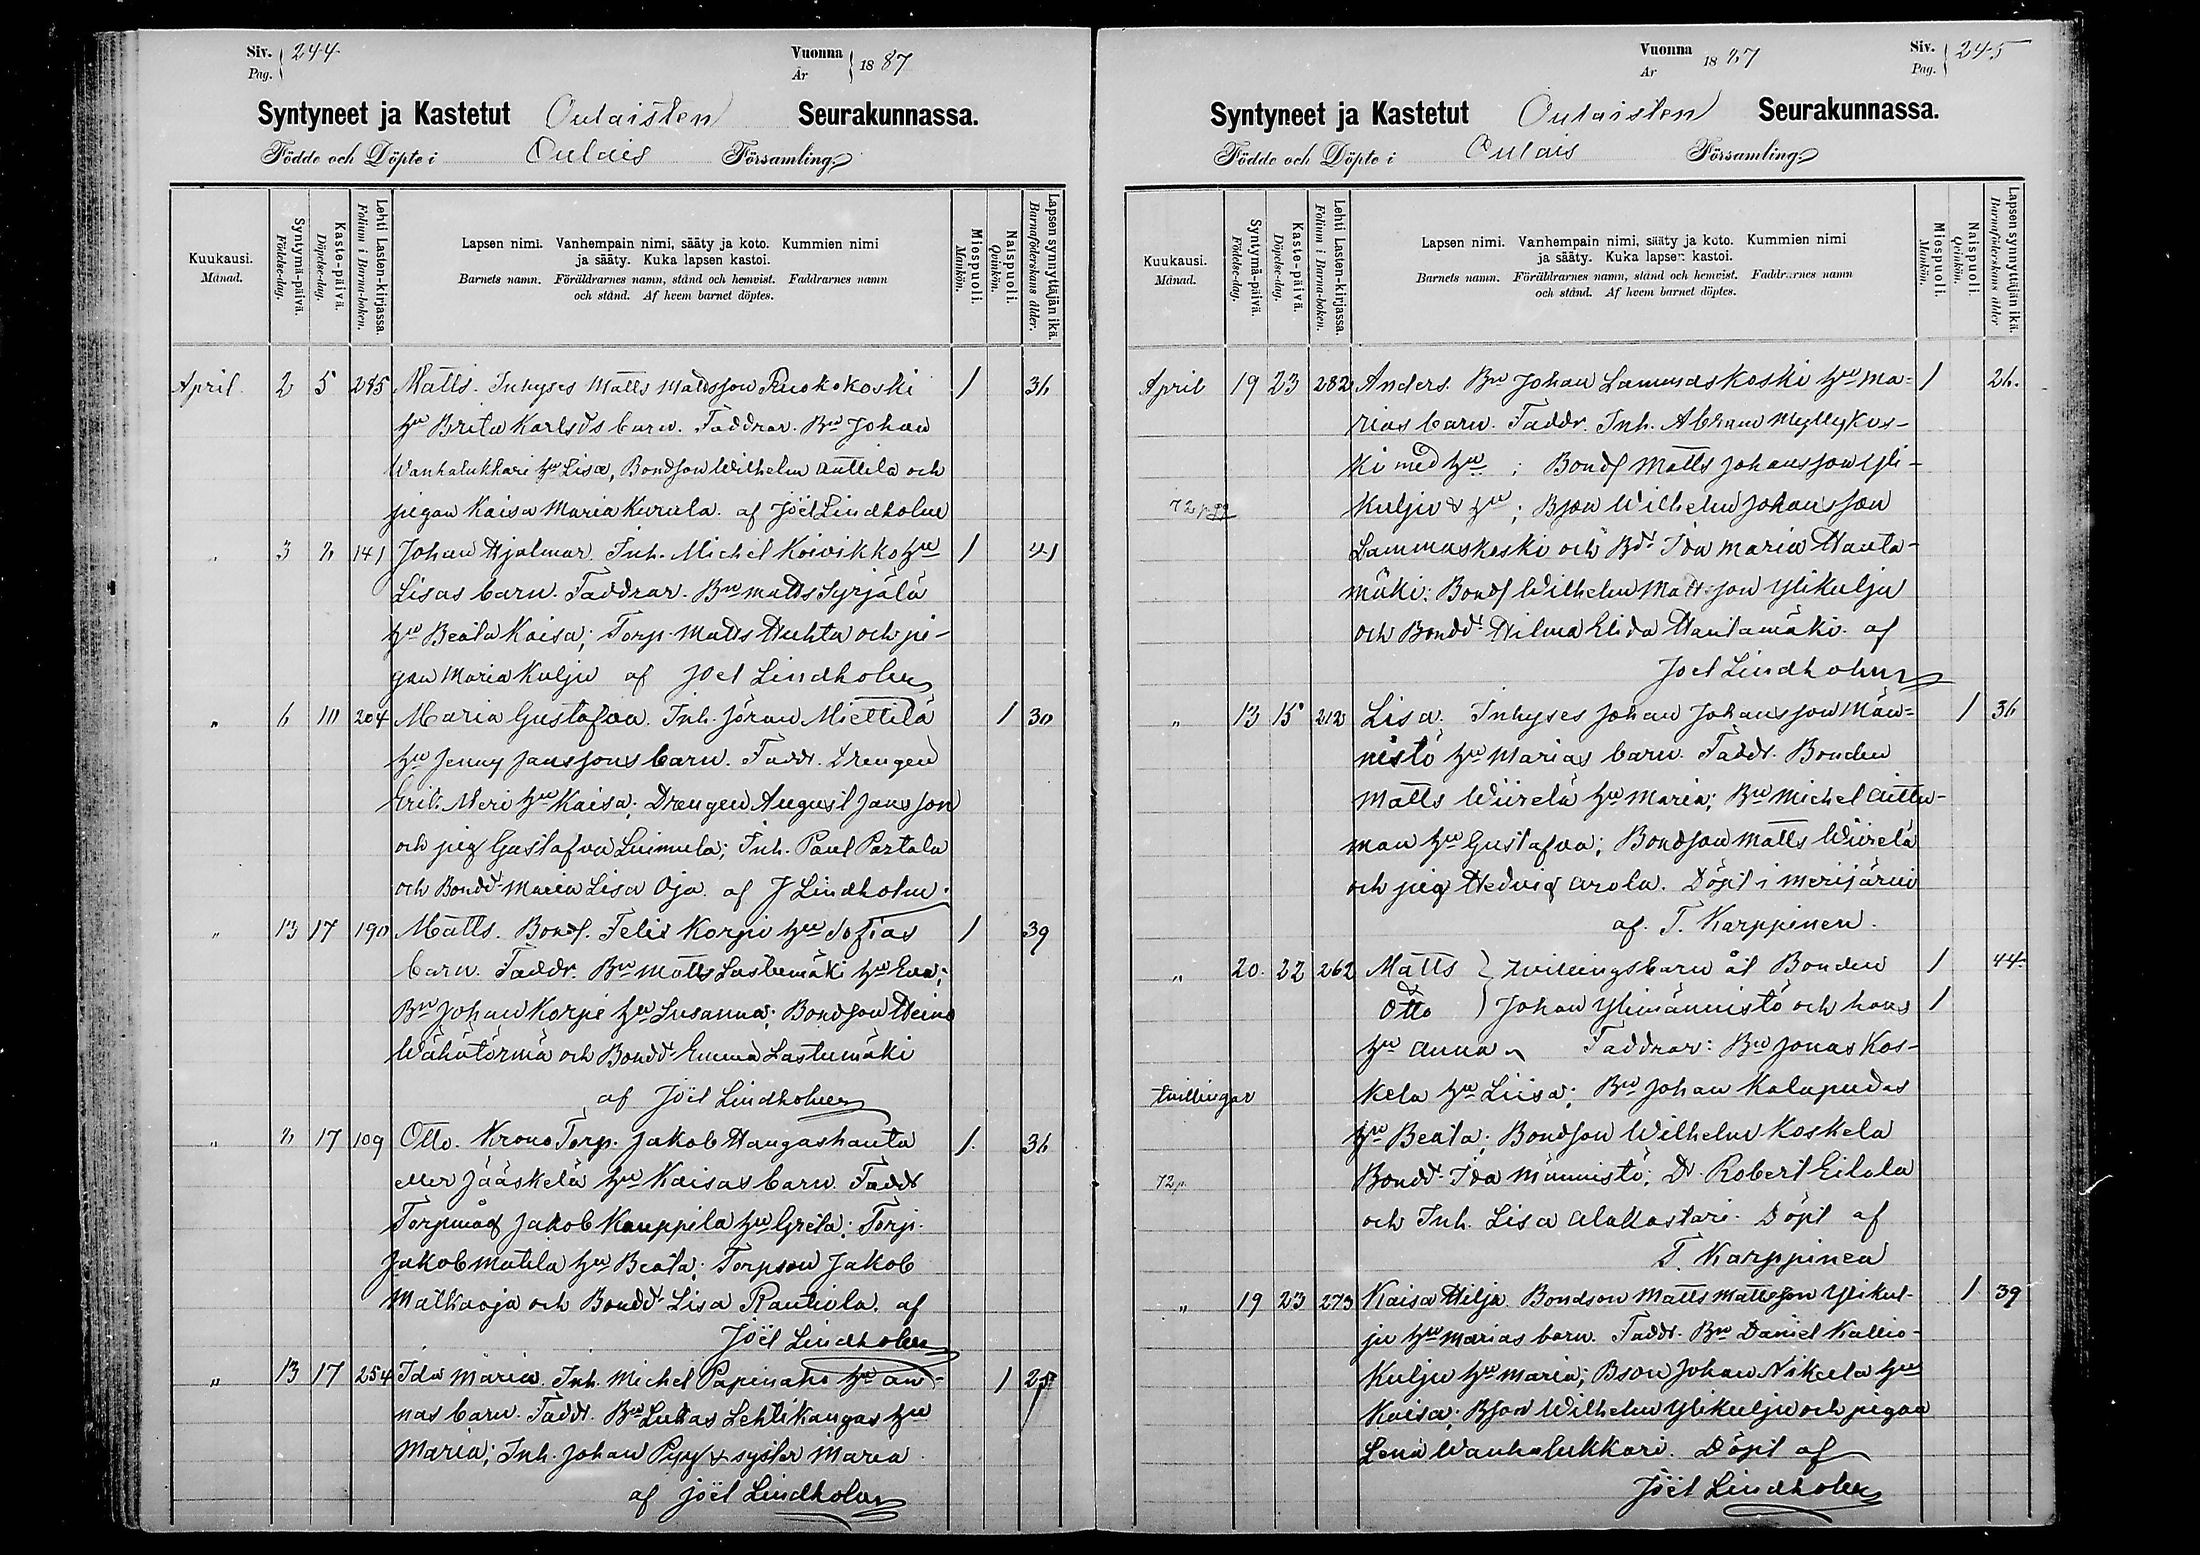 Siv. Pag. 244
Vuonna År 1887
Syntyneet ja Kastetut Oulaisten Seurakunnassa.
Födde och Döpte i Oulais Församling.
Kuukausi. Månad.
Syntymä-päivä. Födelse-dag.
Kaste-päivä. Döpelse-dag.
Lehti Lasten-kirjassa. Folium i Barna-boken.
Lapsen nimi. Vanhempain nimi, sääty ja koto. Kummien nimi
ja sääty. Kuka lapsen kastoi.
Barnets namn. Föräldrarnes namn, stånd och hemvist. Faddrarnes namn
och stånd. Af hvem barnet döptes.
Miespuoli. Mankön.
Naispuoli. Qvinkön.
Lapsen synnyttäjän ikä. Barnaföderskans ålder.
April. 2 5 285 Matts. Inhyses Matts Mattsson Ruokokoski 1 36
hu Brita Karlsds barn. Faddrar. Bn Johan
Wanhalukkari hu Lisa, Bondson Wilhelm Anttila och
pigan Kaisa Maria Kurula. af Joël Lindholm
" 3 " 141 Johan Hjalmar. Inh. Michel Koivikko hu 1 41
Lisas barn. Faddrar. Bn Matts Syrjälä
hu Beata Kaisa; Torp. Matts Huhta och pi-
gan Maria Kulju af Joel Lindholm
" 6 10 204 Maria Gustafva. Inh. Jöran Miettilä 1 30
hu Jenny Janssons barn. Faddr. Drengen
Erik Meri hu Kaisa; Drengen August Jansson
och pig Gustafva Luimula; Inh. Paul Partala
och Bondd. Maria Lisa Oja. af J Lindholm.
" 13 17 190 Matts. Bonds. Felix Korpi hu Sofias 1 39
barn. Faddr. Bn Matts Lastumäki hu Eva;
Bn Johan Korpi hu Susanna; Bondson Heino
Wähätörmä och Bondd. Emma Lastumäki
af Joël Lindholm
" " 17 109 Otto. Krono Torp. Jakob Haugashauta 1. 36
eller Jääskelä hu Kaisas barn. Faddr
Torpmåg Jakob Kauppila hu Greta; Torp.
Jakob Matila hu Beata; Torpson Jakob
Matkaoja och Bondd. Lisa Rautiola. af
Joël Lindholm
" 13 17 254 Ida Maria. Inh. Michel Papinaho hu An- 1 25
nas barn. Faddr. Bn Lukas Lehtikangas hu
Maria; Inh. Johan Pyy & syster Maria
af Joël Lindholm
Vuonna År 1887
Siv. Pag. 245
Syntyneet ja Kastetut Oulaisten Seurakunnassa.
Födde och Döpte i Oulais Församling.
Kuukausi. Månad.
Syntymä-päivä. Födelse-dag.
Kaste-päivä. Döpelse-dag.
Lehti Lasten-kirjassa. Folium i Barna-boken.
Lapsen nimi. Vanhempain nimi, sääty ja koto. Kummien nimi
ja sääty. Kuka lapsen kastoi.
Barnets namn. Föräldrarnes namn, stånd och hemvist. Faddrarnes namn
och stånd. Af hvem barnet döptes.
Miespuoli. Mankön.
Naispuoli. Qvinkön.
Lapsen synnyttäjän ikä. Barnaföderskans ålder
April 19 23 282 Anders. Bn Johan Lammaskoski hu Ma- 1 26.
rias barn. Faddr. Inh. Abram Myllykos-
ki med hu; Bonds Matts Johansson Yli-
72 p kulju & hu; Bson Wilhelm Johansson
Lammaskoski och Bd. Ida Maria Hauta-
mäki; Bonds Wilhelm Mattsson Ylikulju
och Bondd. Hilma Elida Hautamäki. af
Joel Lindholm
" 13 15 212 Lisa. Inhyses Johan Johansson Män- 1 36
nistö hu Marias barn. Faddr. Bonden
Matts Wiirelä hu Maria; Bn Michel Aittu-
man hu Gustafva; Bondson Matts Wiirelä
och pig Hedvig Arola. Döpt i Merijärvi
af. T. Karppinen.
" 20. 22 262 Matts } tvillingsbarn åt Bonden 1 44.
& Otto } Johan Ylimännistö och hans 1
hu Anna. Faddrar: Bn Jonas Kos-
tvillingar kela hu Liisa; Bn Johan Kalapudas
hu Beata; Bondson Wilhelm Koskela
72 p. Bondd. Ida Männistö; D. Robert Eilola
och Inh. Lisa Alakastari. Döpt af
T. Karppinen
" 19 23 273 Kaisa Hilja. Bondson Matts Mattsson Ylikul- 1 39
ju hu Marias barn. Faddr. Bn Daniel Kallio-
kulju hu Maria; Bson Johan Nikula hu
Kaisa; Bson Wilhelm Ylikulju och pigan
Lena Wanhalukkari. Döpt af
Joël Lindholm